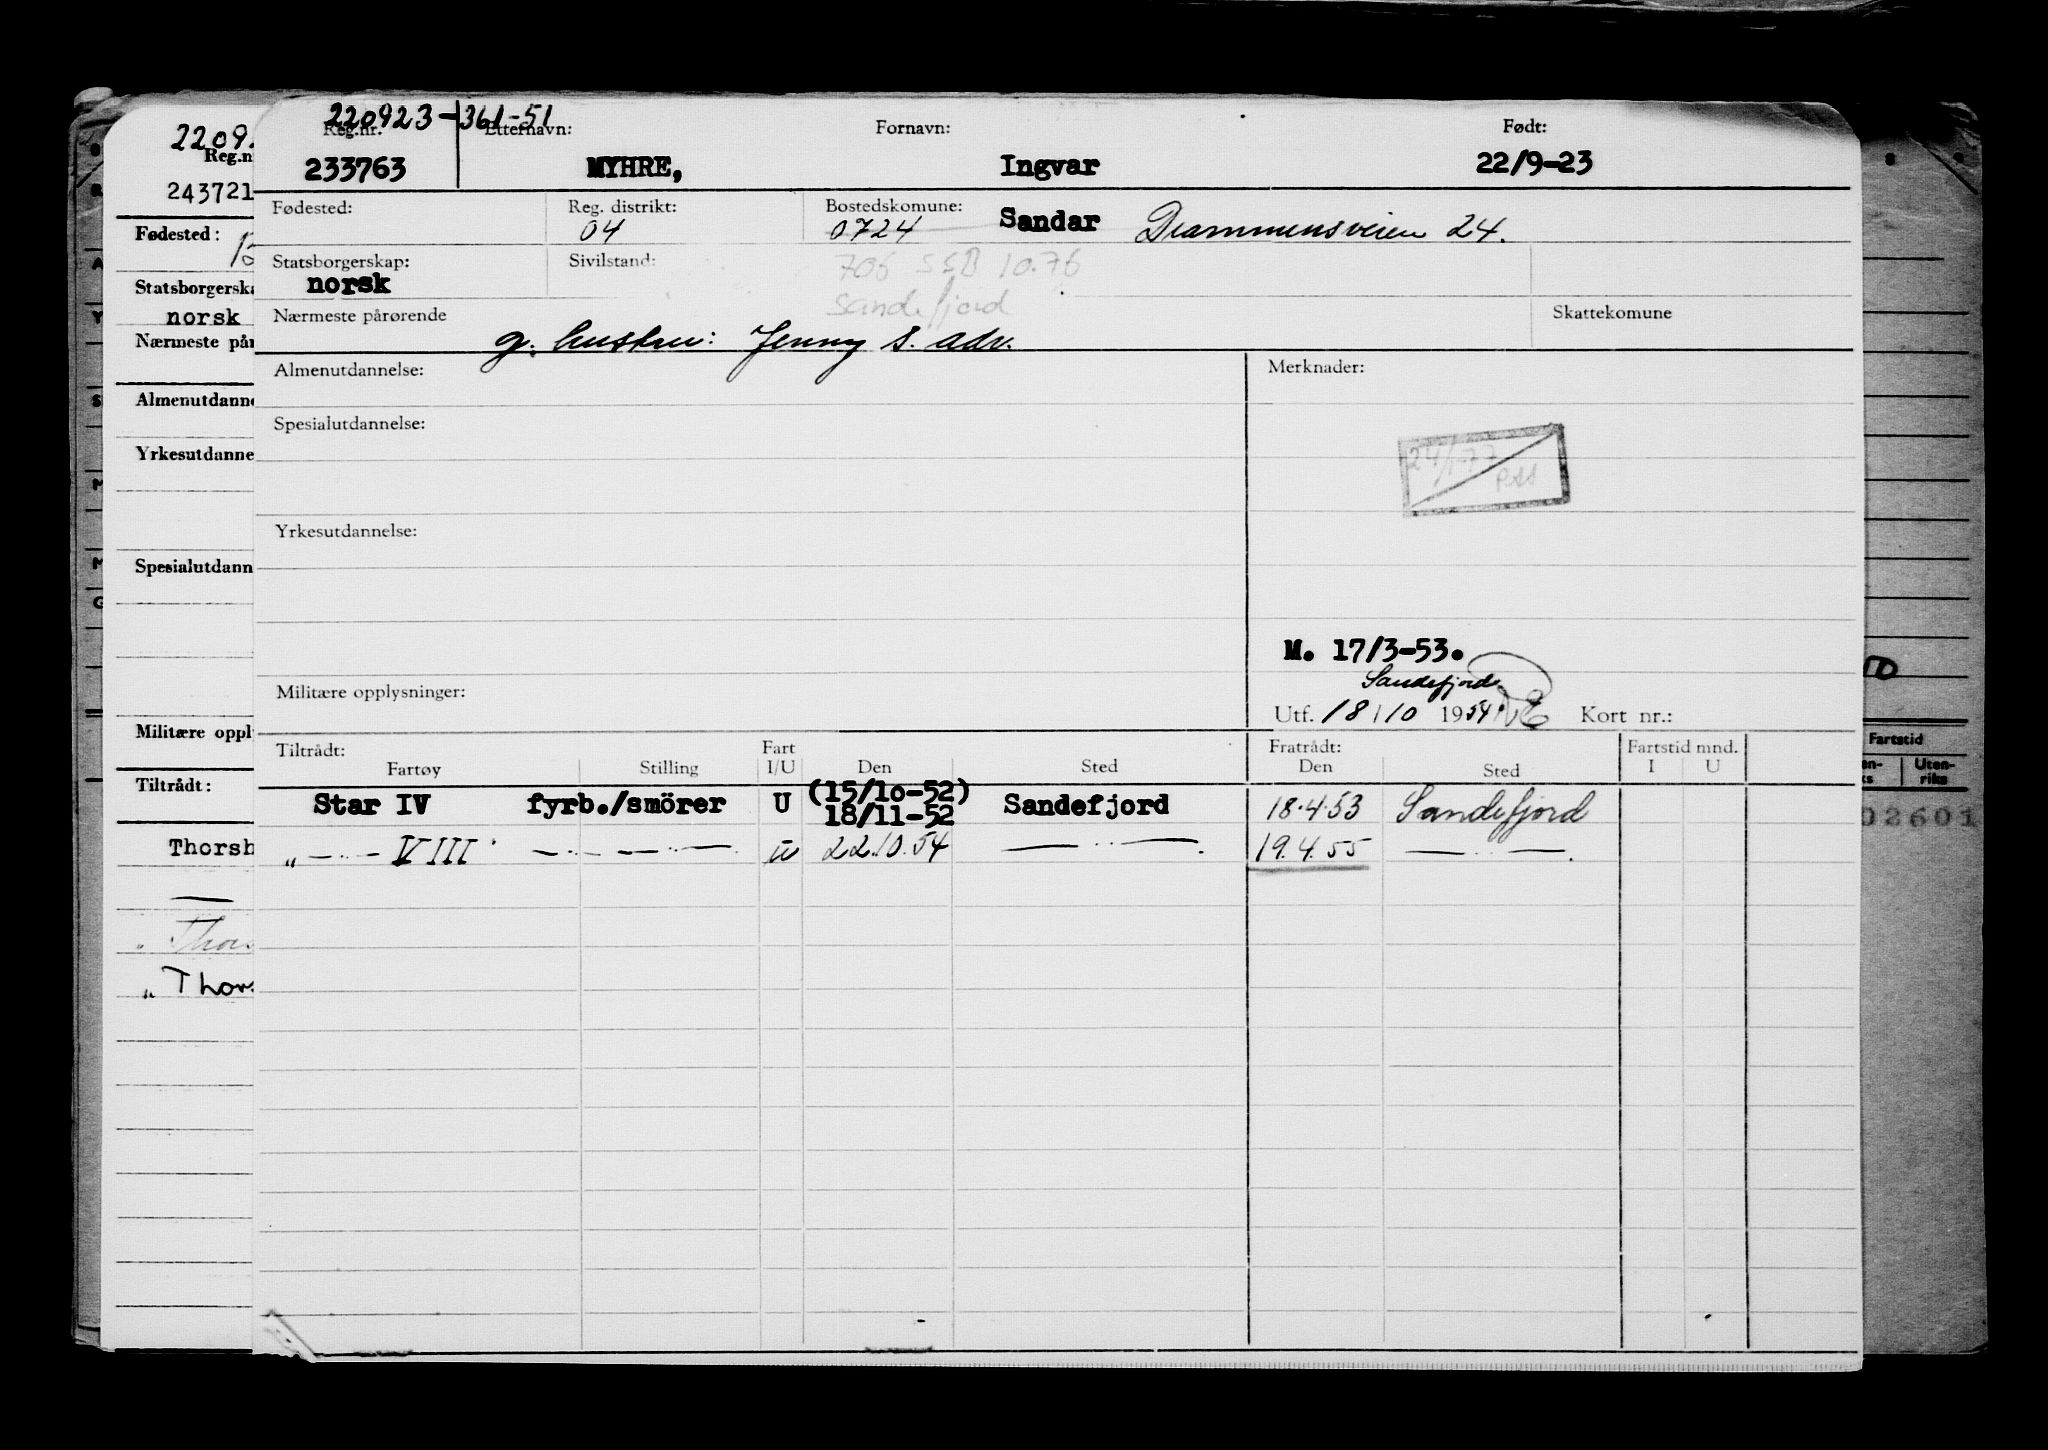 220923-361-51
Reg.nr. Etternavn: Fornavn: Født:
233763 MYHRE, Ingvar 22/9-23
Fødested: Reg. distrikt: Bostedskomune:
04 0724 Sandar Drammensveien 24.
Statsborgerskap: Sivilstand: 706 SSB 10.76
norsk Sandefjord
Nærmeste pårørende Skattekomune
g. hustru: Jenny s. adr.
Almenutdannelse: Merknader:
Spesialutdannelse:
24/1-77
Yrkesutdannelse:
M. 17/3-53.
Sandefjord
Militære opplysninger:
Utf. 18/10 1954 Kort nr.:
Tiltrådt: Fart Fratrådt: Fartstid mnd.
Fartøy Stilling I/U Den Sted Den Sted I U
Star IV fyrb./smörer U (15/10-52) 18/11-52 Sandefjord 18.4.53 Sandefjord
„ —·— VIII —·—·— U 22.10.54 —··— 19.4.55 —··—
2209
Reg.n
243721
Fødested:
Statsborgerska
norsk
Nærmeste pår
Almenutdanne
Yrkesutdanne
Spesialutdann
Militære oppl
Tiltrådt:
Thorsh
—
„ Thors
„ Thors
A
Y
S
M
M
G
Fartstid
en-ks Uten-riks
02601